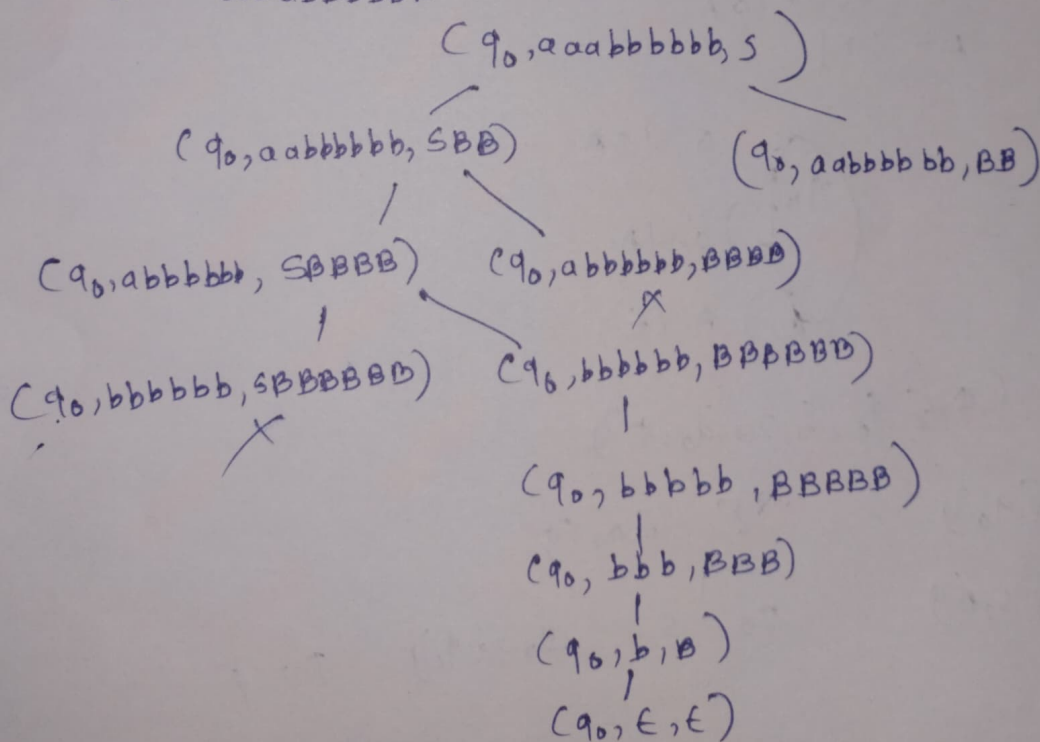 (q₀, aaabbbbbb, S)
(q₀, aabbbbbb, SBB) (q₀, aabbbbbb, BB)
(q₀, abbbbbb, SBBBB) (q₀, abbbbbb, BBBB)
(q₀, bbbbbb, SBBBBBB) (q₀, bbbbbb, BBBBBB)
(q₀, bbbbb, BBBBB)
(q₀, bbb, BBB)
(q₀, b, B)
(q₀, ε, ε)